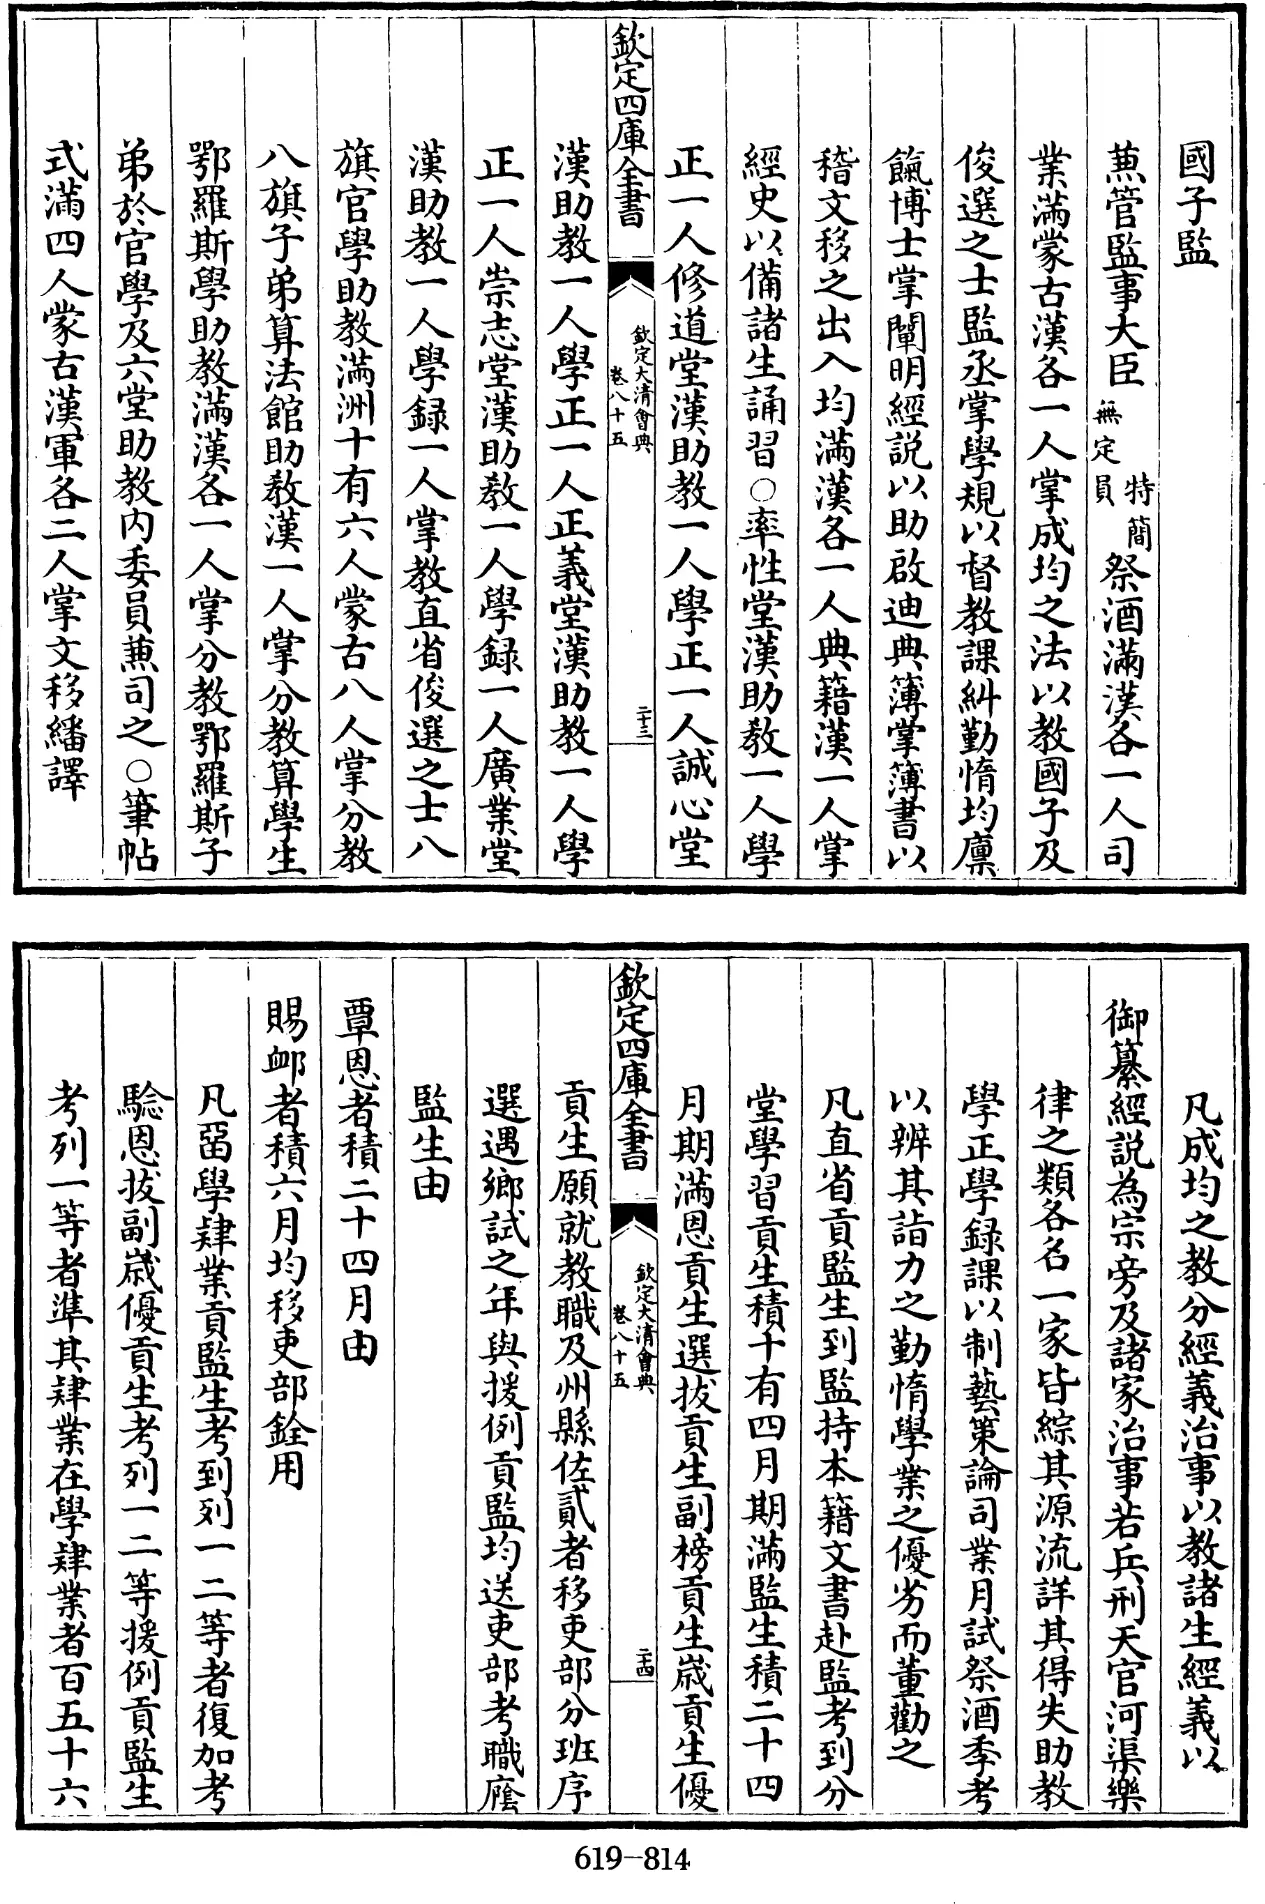 國子監
兼管監事大臣特簡無定員祭酒滿漢各一人司
業滿蒙古漢各一人掌成均之法以教國子及
俊選之士監丞掌學規以督教課糾勤惰均廪
餼博士掌闡明經説以助啟迪典簿掌簿書以
稽文移之出入均滿漢各一人典籍漢一人掌
經史以備諸生誦習○率性堂漢助教一人學
正一人修道堂漢助教一人學正一人誠心堂
欽定四庫全書
欽定大清會典
卷八十五
二十三
漢助教一人學正一人正義堂漢助教一人學
正一人崇志堂漢助教一人學録一人廣業堂
漢助教一人學録一人掌教直省俊選之士八
旗官學助教滿洲十有六人蒙古八人掌分教
八旗子弟算法館助教漢一人掌分教算學生
鄂羅斯學助教滿漢各一人掌分教鄂羅斯子
弟於官學及六堂助教内委員兼司之○筆帖
式滿四人蒙古漢軍各二人掌文移繙譯
凡成均之教分經義治事以教諸生經義以
御纂經説為宗旁及諸家治事若兵刑天官河渠樂
律之類各名一家皆綜其源流詳其得失助教
學正學録課以制藝策論司業月試祭酒季考
以辨其詣力之勤惰學業之優劣而董勸之
凡直省貢監生到監持本籍文書赴監考到分
堂學習貢生積十有四月期滿監生積二十四
月期滿恩貢生選拔貢生副榜貢生嵗貢生優
欽定四庫全書
欽定大清會典
卷八十五
二十四
貢生願就教職及州縣佐貳者移吏部分班序
選遇鄉試之年與援例貢監均送吏部考職廕
監生由
覃恩者積二十四月由
賜卹者積六月均移吏部銓用
凡留學肄業貢監生考到列一二等者復加考
驗恩拔副嵗優貢生考列一二等援例貢監生
考列一等者準其肄業在學肄業者百五十六
619-814